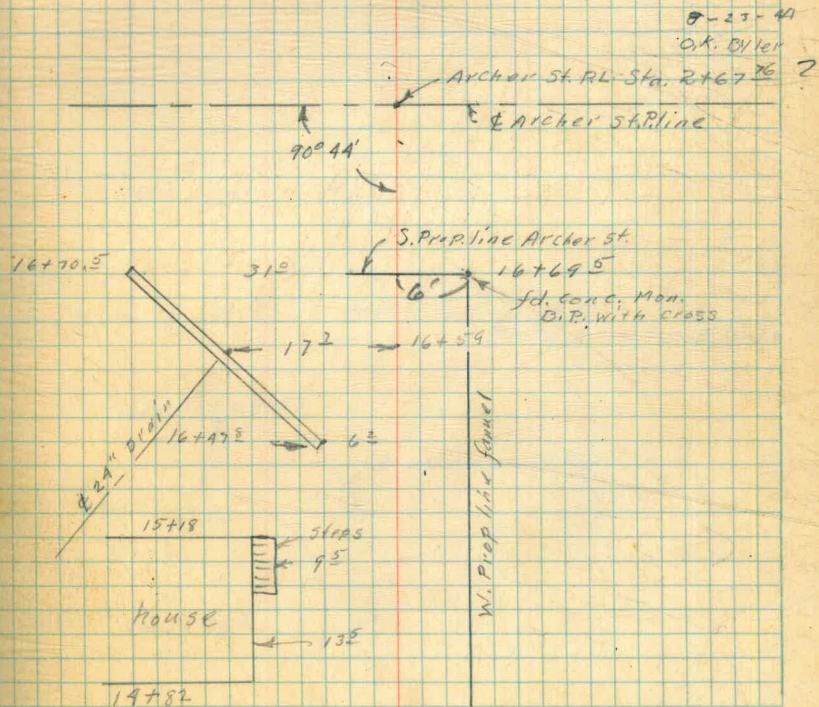 8-23-44
O.K. Byler
2
Archer St. P.L. Sta. 2+67 76
℄ Archer St. P. line
90° 44'
S. Prop. line Archer St.
16+70.5
31 0
16+69 5
6'
fd. conc. Mon.
B.P. with cross
17 2
16+59
℄ 24" Drain
16+47 8
6 2
W. Prop line Fannel
15+18
steps
9 5
house
13 5
14+82